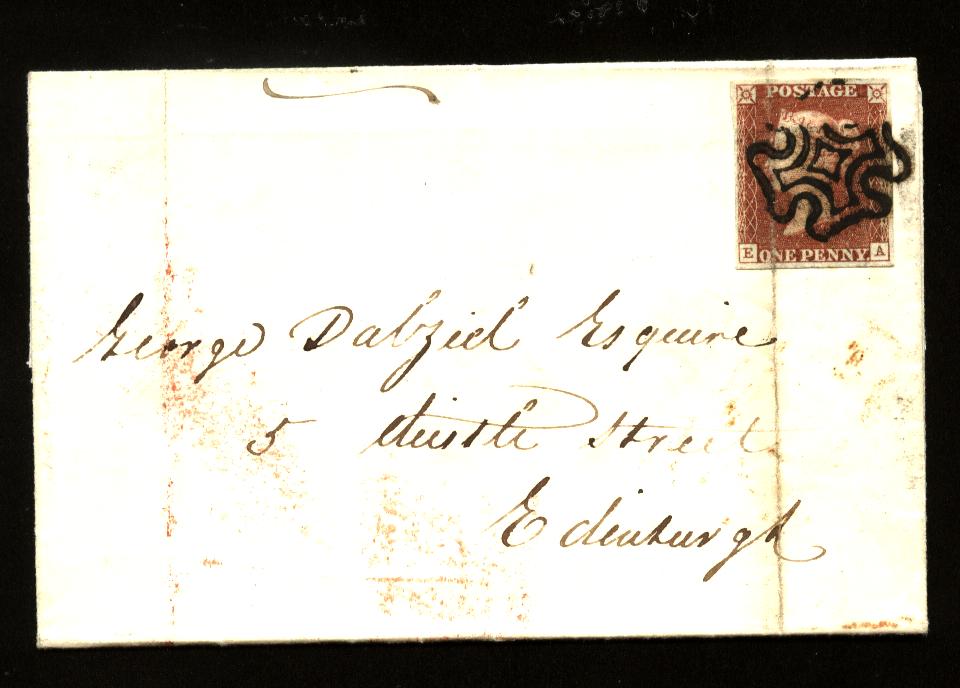 POSTAGE
E ONE PENNY A
George Dalziel Esquire
5 Street
Edinburgh